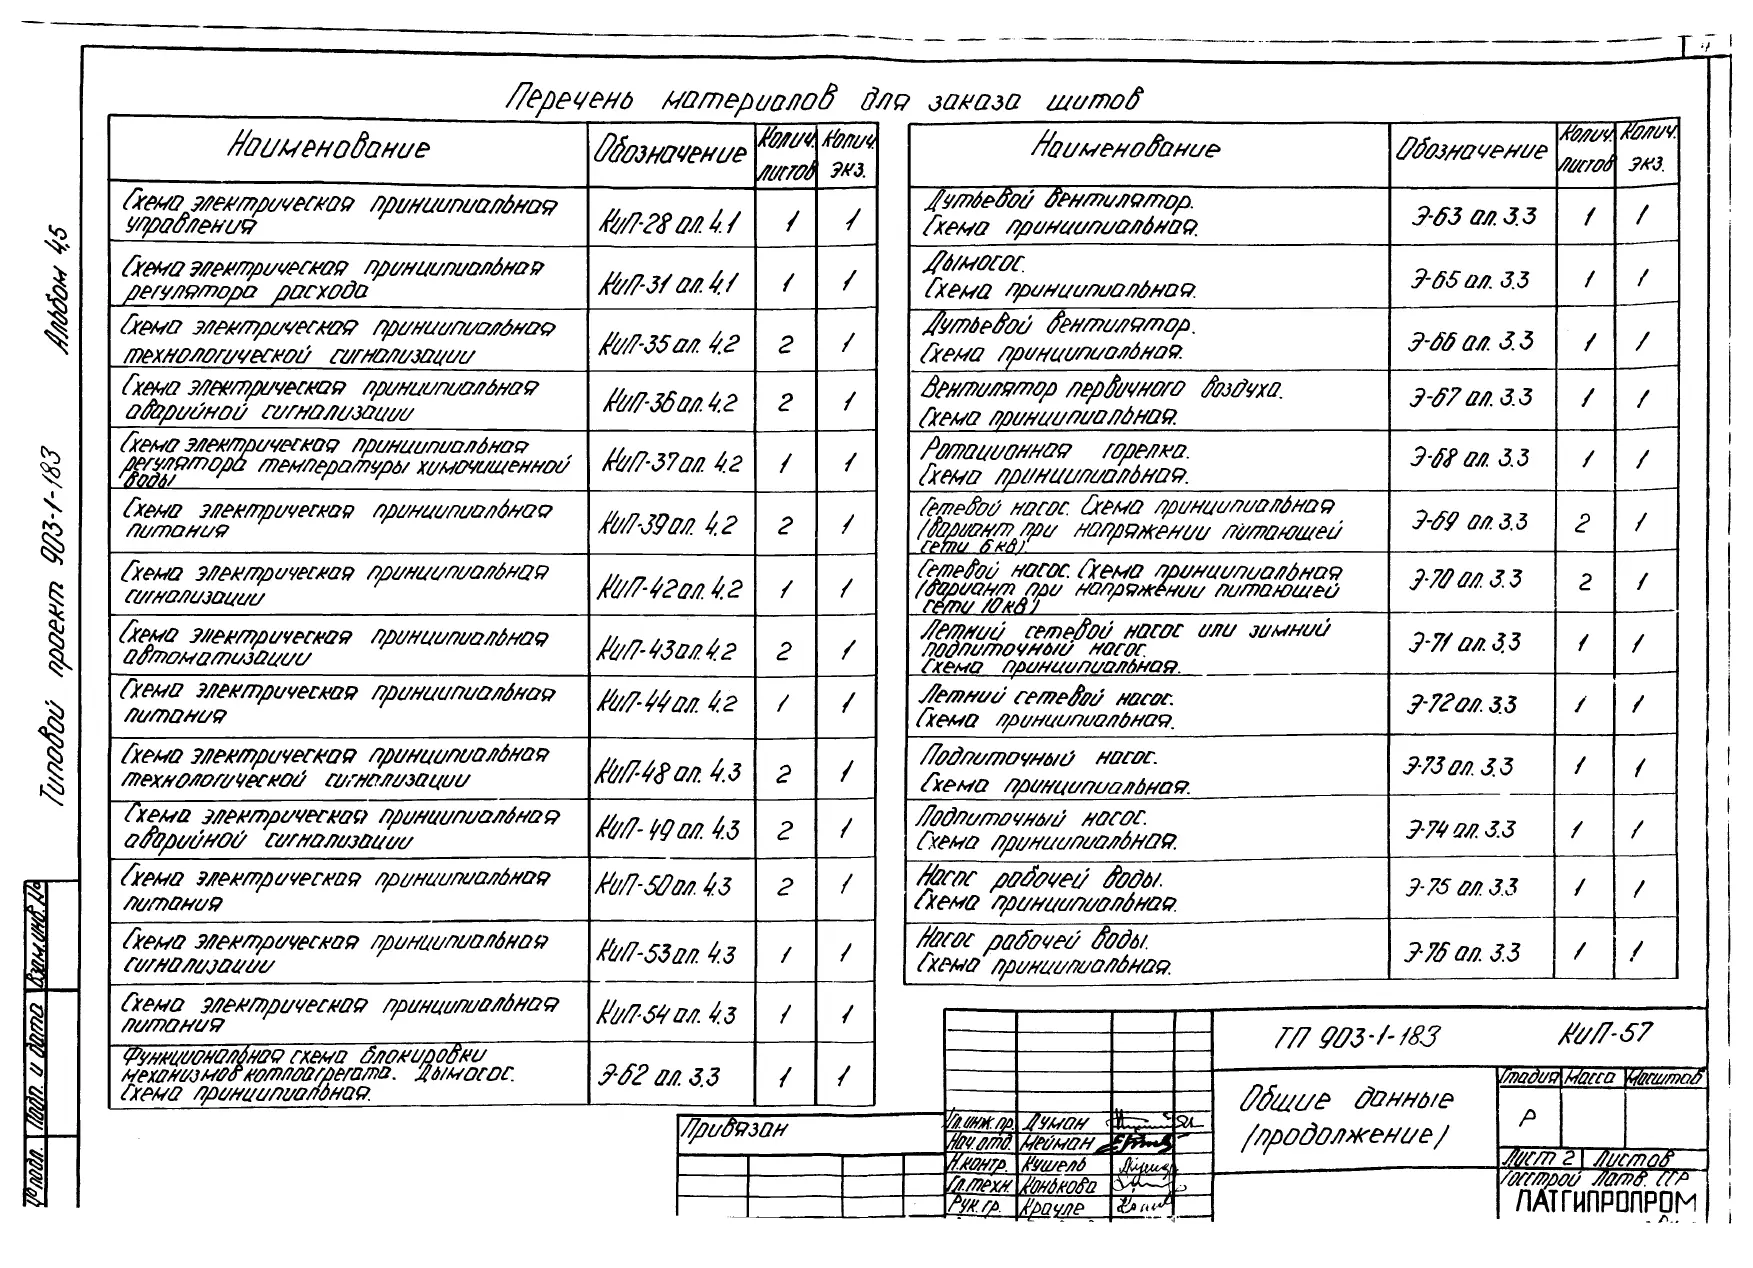 4
Перечень материалов для заказа щитов
Наименование Обозначение Колич. листов Колич. экз.
Схема электрическая принципиальная
управления КиП-28 ал. 4.1 1 1
Схема электрическая принципиальная
регулятора расхода КиП-31 ал. 4.1 1 1
Схема электрическая принципиальная
технологической сигнализации КиП-35 ал. 4.2 2 1
Схема электрическая принципиальная
аварийной сигнализации КиП-36 ал. 4.2 2 1
Схема электрическая принципиальная
регулятора температуры химочищенной
воды КиП-37 ал. 4.2 1 1
Схема электрическая принципиальная
питания КиП-39 ал. 4.2 2 1
Схема электрическая принципиальная
сигнализации КиП-42 ал. 4.2 1 1
Схема электрическая принципиальная
автоматизации КиП-43 ал. 4.2 2 1
Схема электрическая принципиальная
питания КиП-44 ал. 4.2 1 1
Схема электрическая принципиальная
технологической сигнализации КиП-48 ал. 4.3 2 1
Схема электрическая принципиальная
аварийной сигнализации КиП-49 ал. 4.3 2 1
Схема электрическая принципиальная
питания КиП-50 ал. 4.3 2 1
Схема электрическая принципиальная
сигнализации КиП-53 ал. 4.3 1 1
Схема электрическая принципиальная
питания КиП-54 ал. 4.3 1 1
Функциональная схема блокировки
механизмов котлоагрегата. Дымосос.
Схема принципиальная. Э-62 ал. 3.3 1 1
Наименование Обозначение Колич. листов Колич. экз.
Дутьевой вентилятор.
Схема принципиальная. Э-63 ал. 3.3 1 1
Дымосос.
Схема принципиальная. Э-65 ал. 3.3 1 1
Дутьевой вентилятор.
Схема принципиальная. Э-66 ал. 3.3 1 1
Вентилятор первичного воздуха.
Схема принципиальная. Э-67 ал. 3.3 1 1
Ротационная горелка.
Схема принципиальная. Э-68 ал. 3.3 1 1
Сетевой насос. Схема принципиальная
(вариант при напряжении питающей
сети 6 кв). Э-69 ал. 3.3 2 1
Сетевой насос. Схема принципиальная
(вариант при напряжении питающей
сети 10 кв) Э-70 ал. 3.3 2 1
Летний сетевой насос или зимний
подпиточный насос.
Схема принципиальная. Э-71 ал. 3.3 1 1
Летний сетевой насос.
Схема принципиальная. Э-72 ал. 3.3 1 1
Подпиточный насос.
Схема принципиальная. Э-73 ал. 3.3 1 1
Подпиточный насос.
Схема принципиальная. Э-74 ал. 3.3 1 1
Насос рабочей воды.
Схема принципиальная. Э-75 ал. 3.3 1 1
Насос рабочей воды.
Схема принципиальная. Э-76 ал. 3.3 1 1
Типовой проект 903-1-183 Альбом 4.5
Взам.инв.№
Подп. и дата
№ подл.
Привязан
Гл.инж.пр. Думан
Нач.отд. Мейман
Н.контр. Кушель
Гл.техн. Конькова
Рук.гр. Крауле
ТП 903-1-183 КиП-57
Общие данные
(продолжение)
Стадия Масса Масштаб
Р
Лист 2 Листов
Госстрой Латв. ССР
ЛАТГИПРОПРОМ